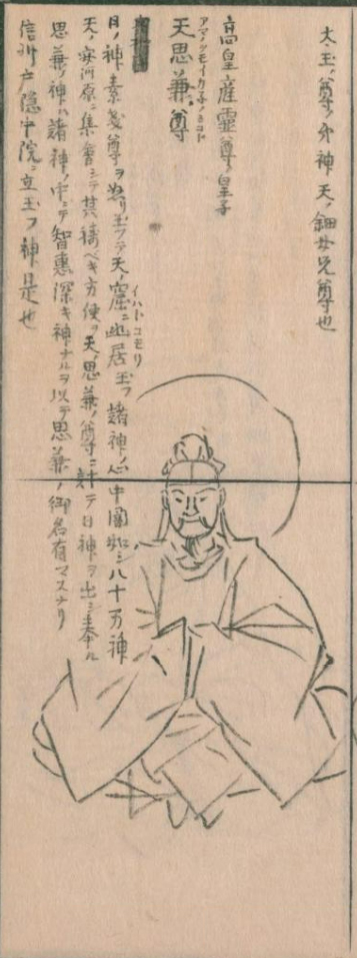 太玉ノ尊ノ分神天ノ鈿女兄尊也
高皇産霊尊ノ皇子
アマノヲモイカ子ノミコト
天思兼ノ尊
日ノ神素戔尊ヲ怒リ玉フテ天ノ窟ニ幽居玉フ諸神ノ心中闇如シ八十万神
イハトコモリ
天ノ安河原ニ集會シテ其祷ベキ方便ヲ天ノ思兼ノ尊ニ計テ日神ヲ出シ奉ル
思兼ノ神ハ諸神ノ中ニテ智恵深キ神ナルヲ以テ思兼ノ御名有マスナリ
信州戸隠中院ニ立玉フ神是也